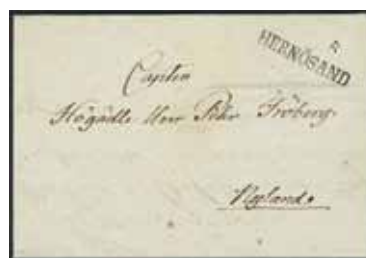 R
HERNÖSAND
Capiten
Högädle Herr Pehr Fröberg
Nyland.